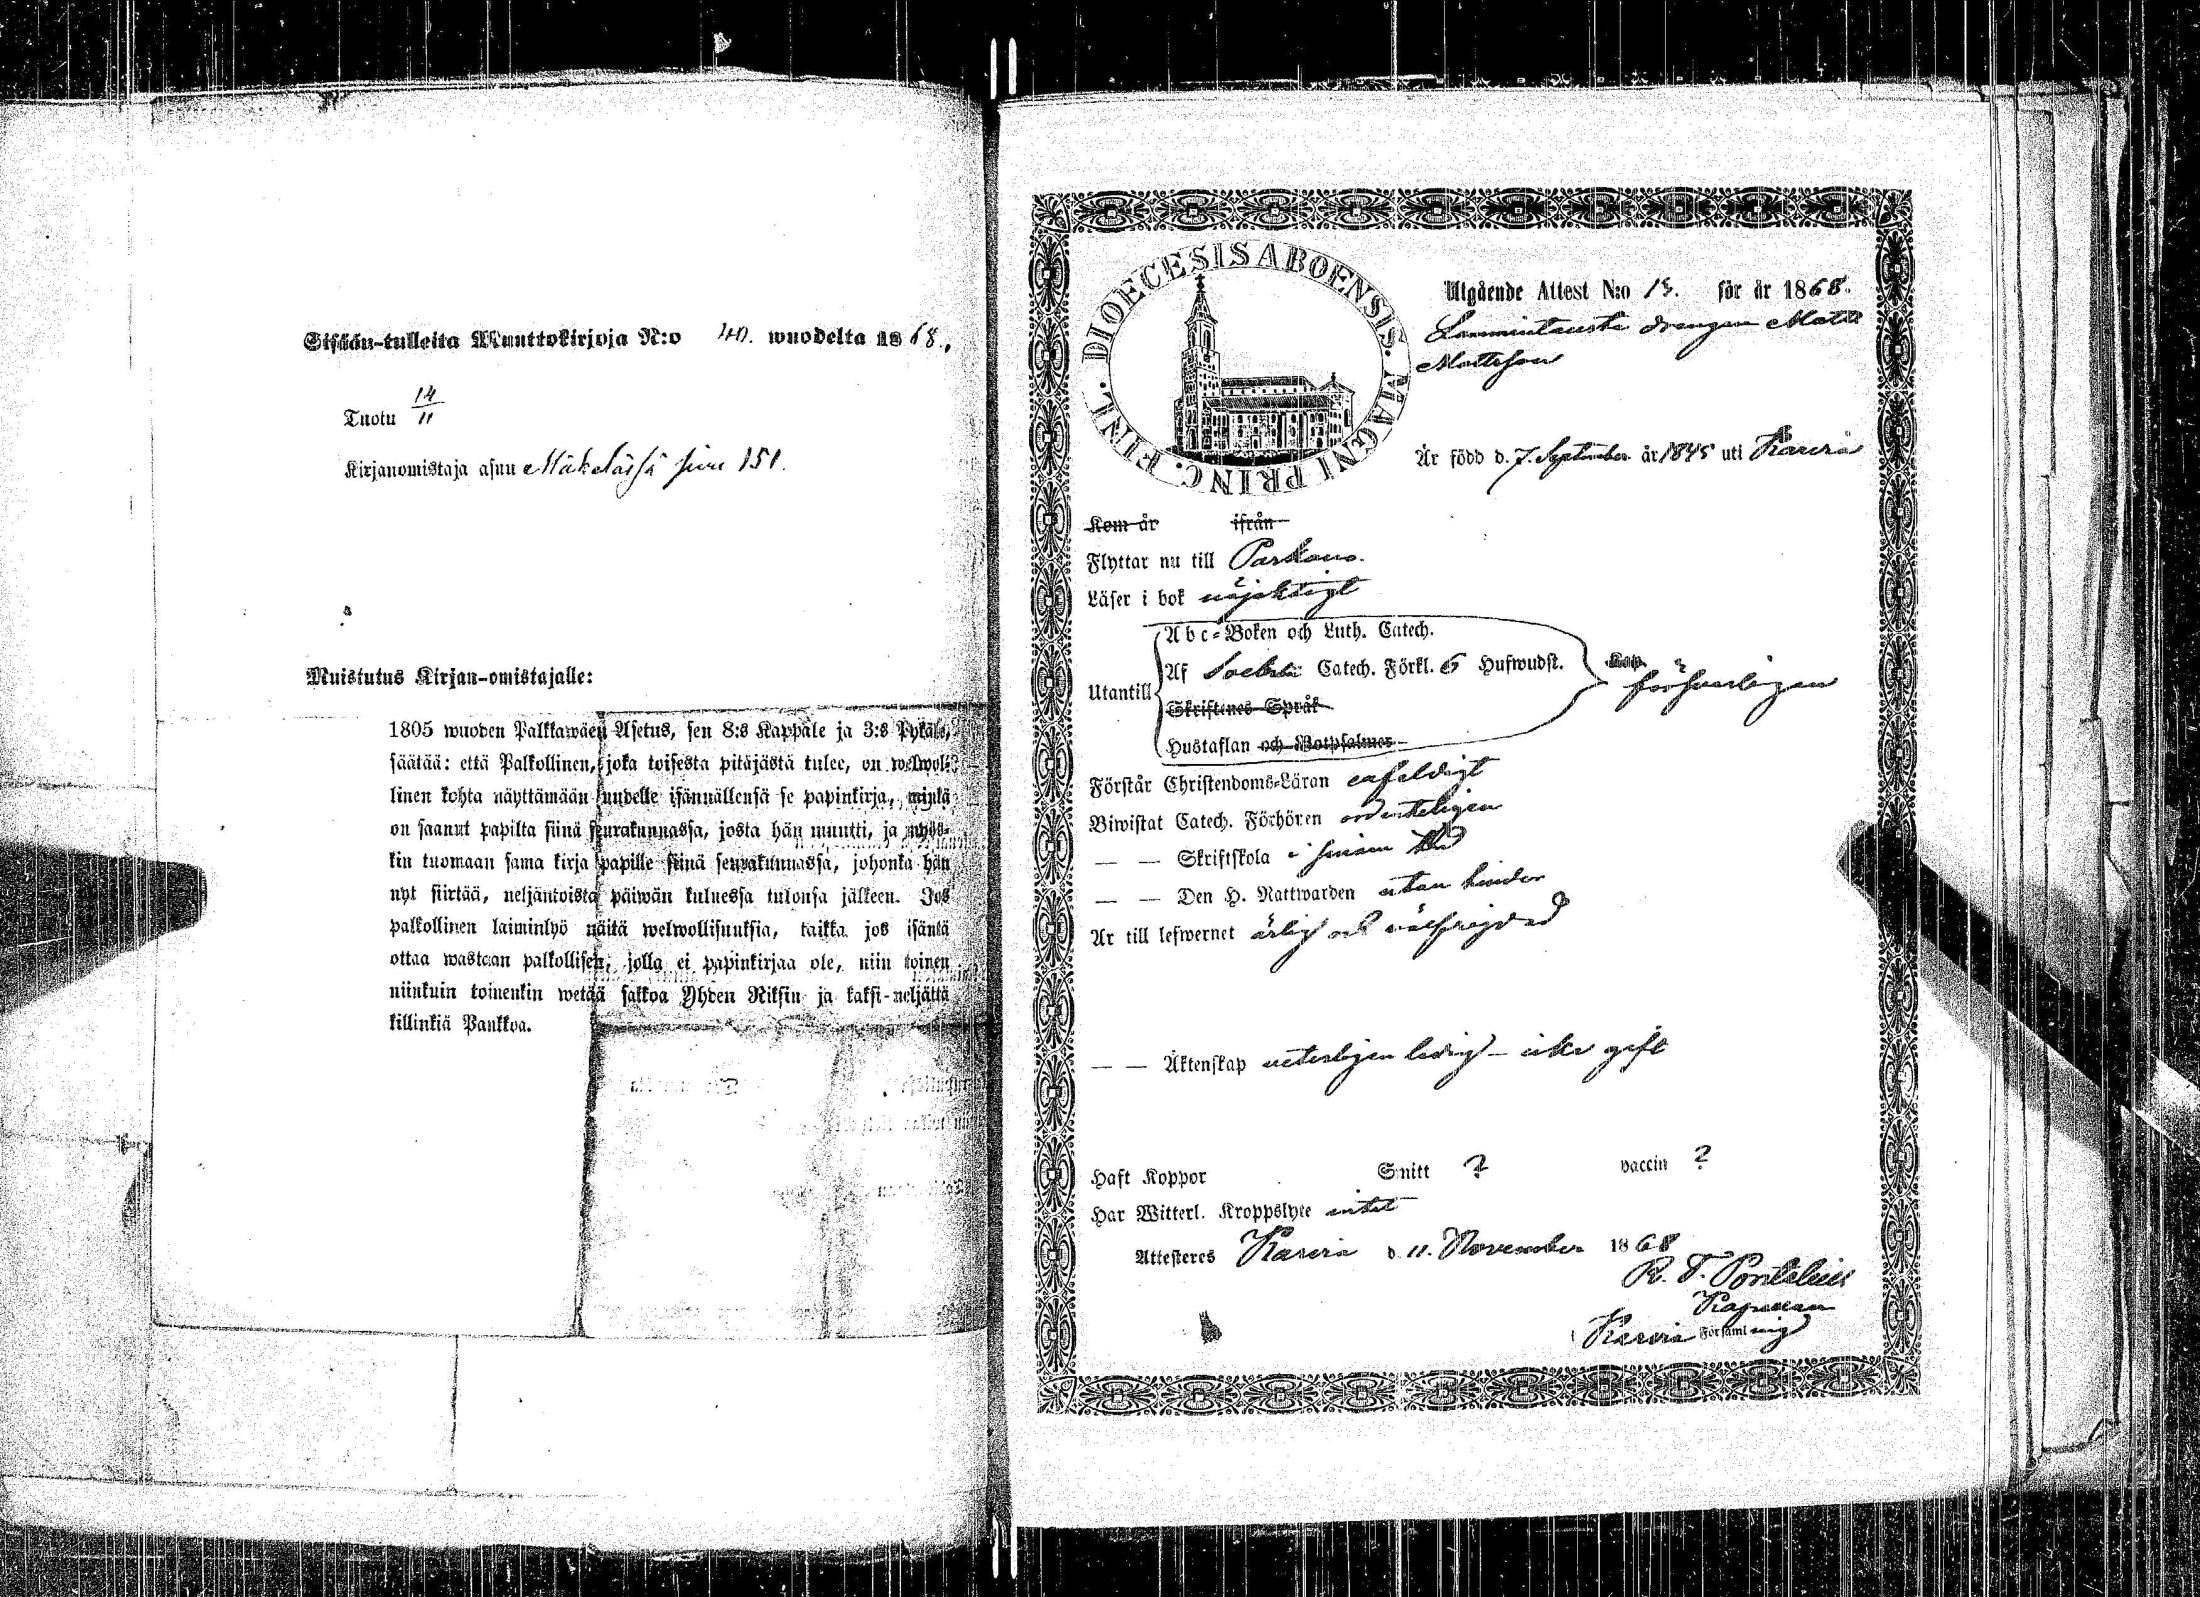 Sisään-tulleita Muuttokirjoja N:o 40. wuodelta 1868.
Tuotu 14/11
Kirjanomistaja asuu Mäkelässä sivu 151.
Muistutus Kirjan-omistajalle:
1805 wuoden Palkkawäen Asetus, sen 8:s Kappale ja 3:s Pykälä,
säätää: että Palkollinen, joka toisesta pitäjästä tulee, on welwol-
linen kohta näyttämään uudelle isännällensä se papinkirja, minkä
on saanut papilta siinä seurakunnassa, josta hän muutti, ja myös-
kin tuomaan sama kirja papille siinä seurakunnassa, johonka hän
nyt siirtää, neljäntoista päiwän kuluessa tulonsa jälkeen. Jos
palkollinen laiminlyö näitä welwollisuuksia, taikka jos isäntä
ottaa wastaan palkollisen, jolla ei papinkirjaa ole, niin toinen
niinkuin toinenkin wetää sakkoa Yhden Riksin ja kaksi-neljättä
killinkiä Pankkoa.
DIOECESIS ABOENSIS. MAGNI PRINC. FINL.
Utgående Attest N:o 13. för år 1868.
drengen Matts
Mattsson
Är född d. 7. September år 1845 uti Karvia
Kom år ifrån
Flyttar nu till Parkano.
Läser i bok nöjaktigt
Abc-Boken och Luth. Catech.
Utantill Af Catech. Förkl. 6 Hufwudst. Kap. försvarligen
Skriftenes Språk
Hustaflan och Botpsalmer
Förstår Christendoms-Läran enfeldigt
Biwistat Catech. Förhören ordenteligen
— — Skriftskola i sinom tid
— — Den H. Nattwarden utan hinder
Är till lefwernet ärlig och välfrejdad
— — Äktenskap veterligen ledig – icke gift
Haft Koppor Snitt ? vaccin ?
Har Witterl. Kroppslyte intet
Attesteres Karvia d. 11. November 1868
R. F. Pontelius
Kapellan
Karvia Församlning